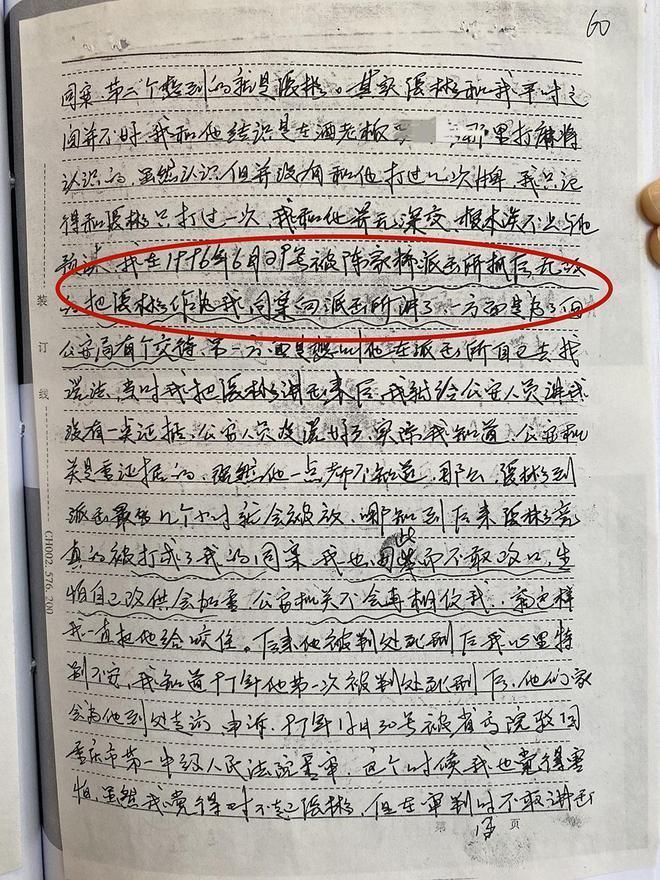 60
同案,第二个想到的就是张彬。其实张彬和我平时之
间并不好,我和他结识是在酒老板 那里打麻将
认识的,虽然认识,但并没有和他打过几次牌,我只记
得和张彬只打过一次,我和他并无深交,根本谈不上与他
我在1996年6月29号被陈家桥派出所抓后,无
把张彬作为我同案向派出所讲了,一方面是为了向
公安局有个交待,第二方面是 他在派出所自己去找
说法,当时我把张彬讲出来后,我就给公安人员讲我
没有一类证据,公安人员没 实际我知道,公安机
关是重证据的,虽然他一点都不知道,那么,张彬到
派出所最多几个小时就会被放,哪知到后来张彬竟
真的被打成了我的同案,我也因此而不敢改口,生
怕自己改供会加重,公安机关不会再相信我,.就这样
我一直把他给咬住。后来他被判处死刑后我心里特
别不安,我知道97年他第一次被判处死刑后,他们家
会为他到处去询,申诉,97年12月30号被省高院驳回
重庆市第一中级人民法院重审,这个时候我也觉得害
怕,虽然我觉得对不起张彬,但在审判时不敢讲出
第 13 页
装
订
线
CH002. 576. 200